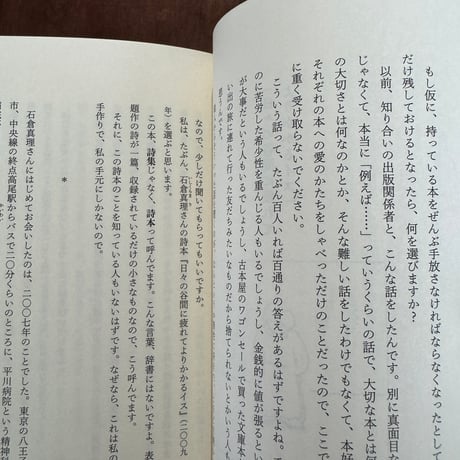 もし仮に、持っている本をぜんぶ手放さなければならなくなったとして
だけ残しておけるとなったら、何を選びますか？
以前、知り合いの出版関係者と、こんな話をしたんです。別に真面目な
じゃなくて、本当に「例えば……」っていうくらいの話で、大切な本とは何
の大切さとは何なのかとか、そんな難しい話をしたわけでもなくて、本好
それぞれの本への愛のかたちをしゃべっただけのことだったので、ここで
に重く受け取らないでください。
こういう話って、たぶん百人いれば百通りの答えがあるはずですよね。
のに苦労した希少性を重んじる人もいるでしょうし、金銭的に値が張るとい
が大事だという人もいるでしょうし、古本屋のワゴンセールで買った文庫本
い出の旅に連れて行った友だちみたいなものだから捨てられないとかいう人も
思うんです。
なので、少しだけ聞いてもらってもいいですか。
私は、たぶん、石倉真理さんの詩本『日々の谷間に疲れてよりかかるイス』（二〇〇九
年）を選ぶと思います。
この本、詩集じゃなく、詩本って呼んでます。こんな言葉、辞書にはないですよ。表
題作の詩が一篇、収録されているだけの小さなものなので、こう呼んでます。
それに、この詩本のことを知っている人もいないはずです。なぜなら、これは私の
手作りで、私の手元にしかないので。
＊
石倉真理さんにはじめてお会いしたのは、二〇〇七年のことでした。東京の八王子
市、中央線の終点高尾駅からバスで二〇分くらいのところに、平川病院という精神科